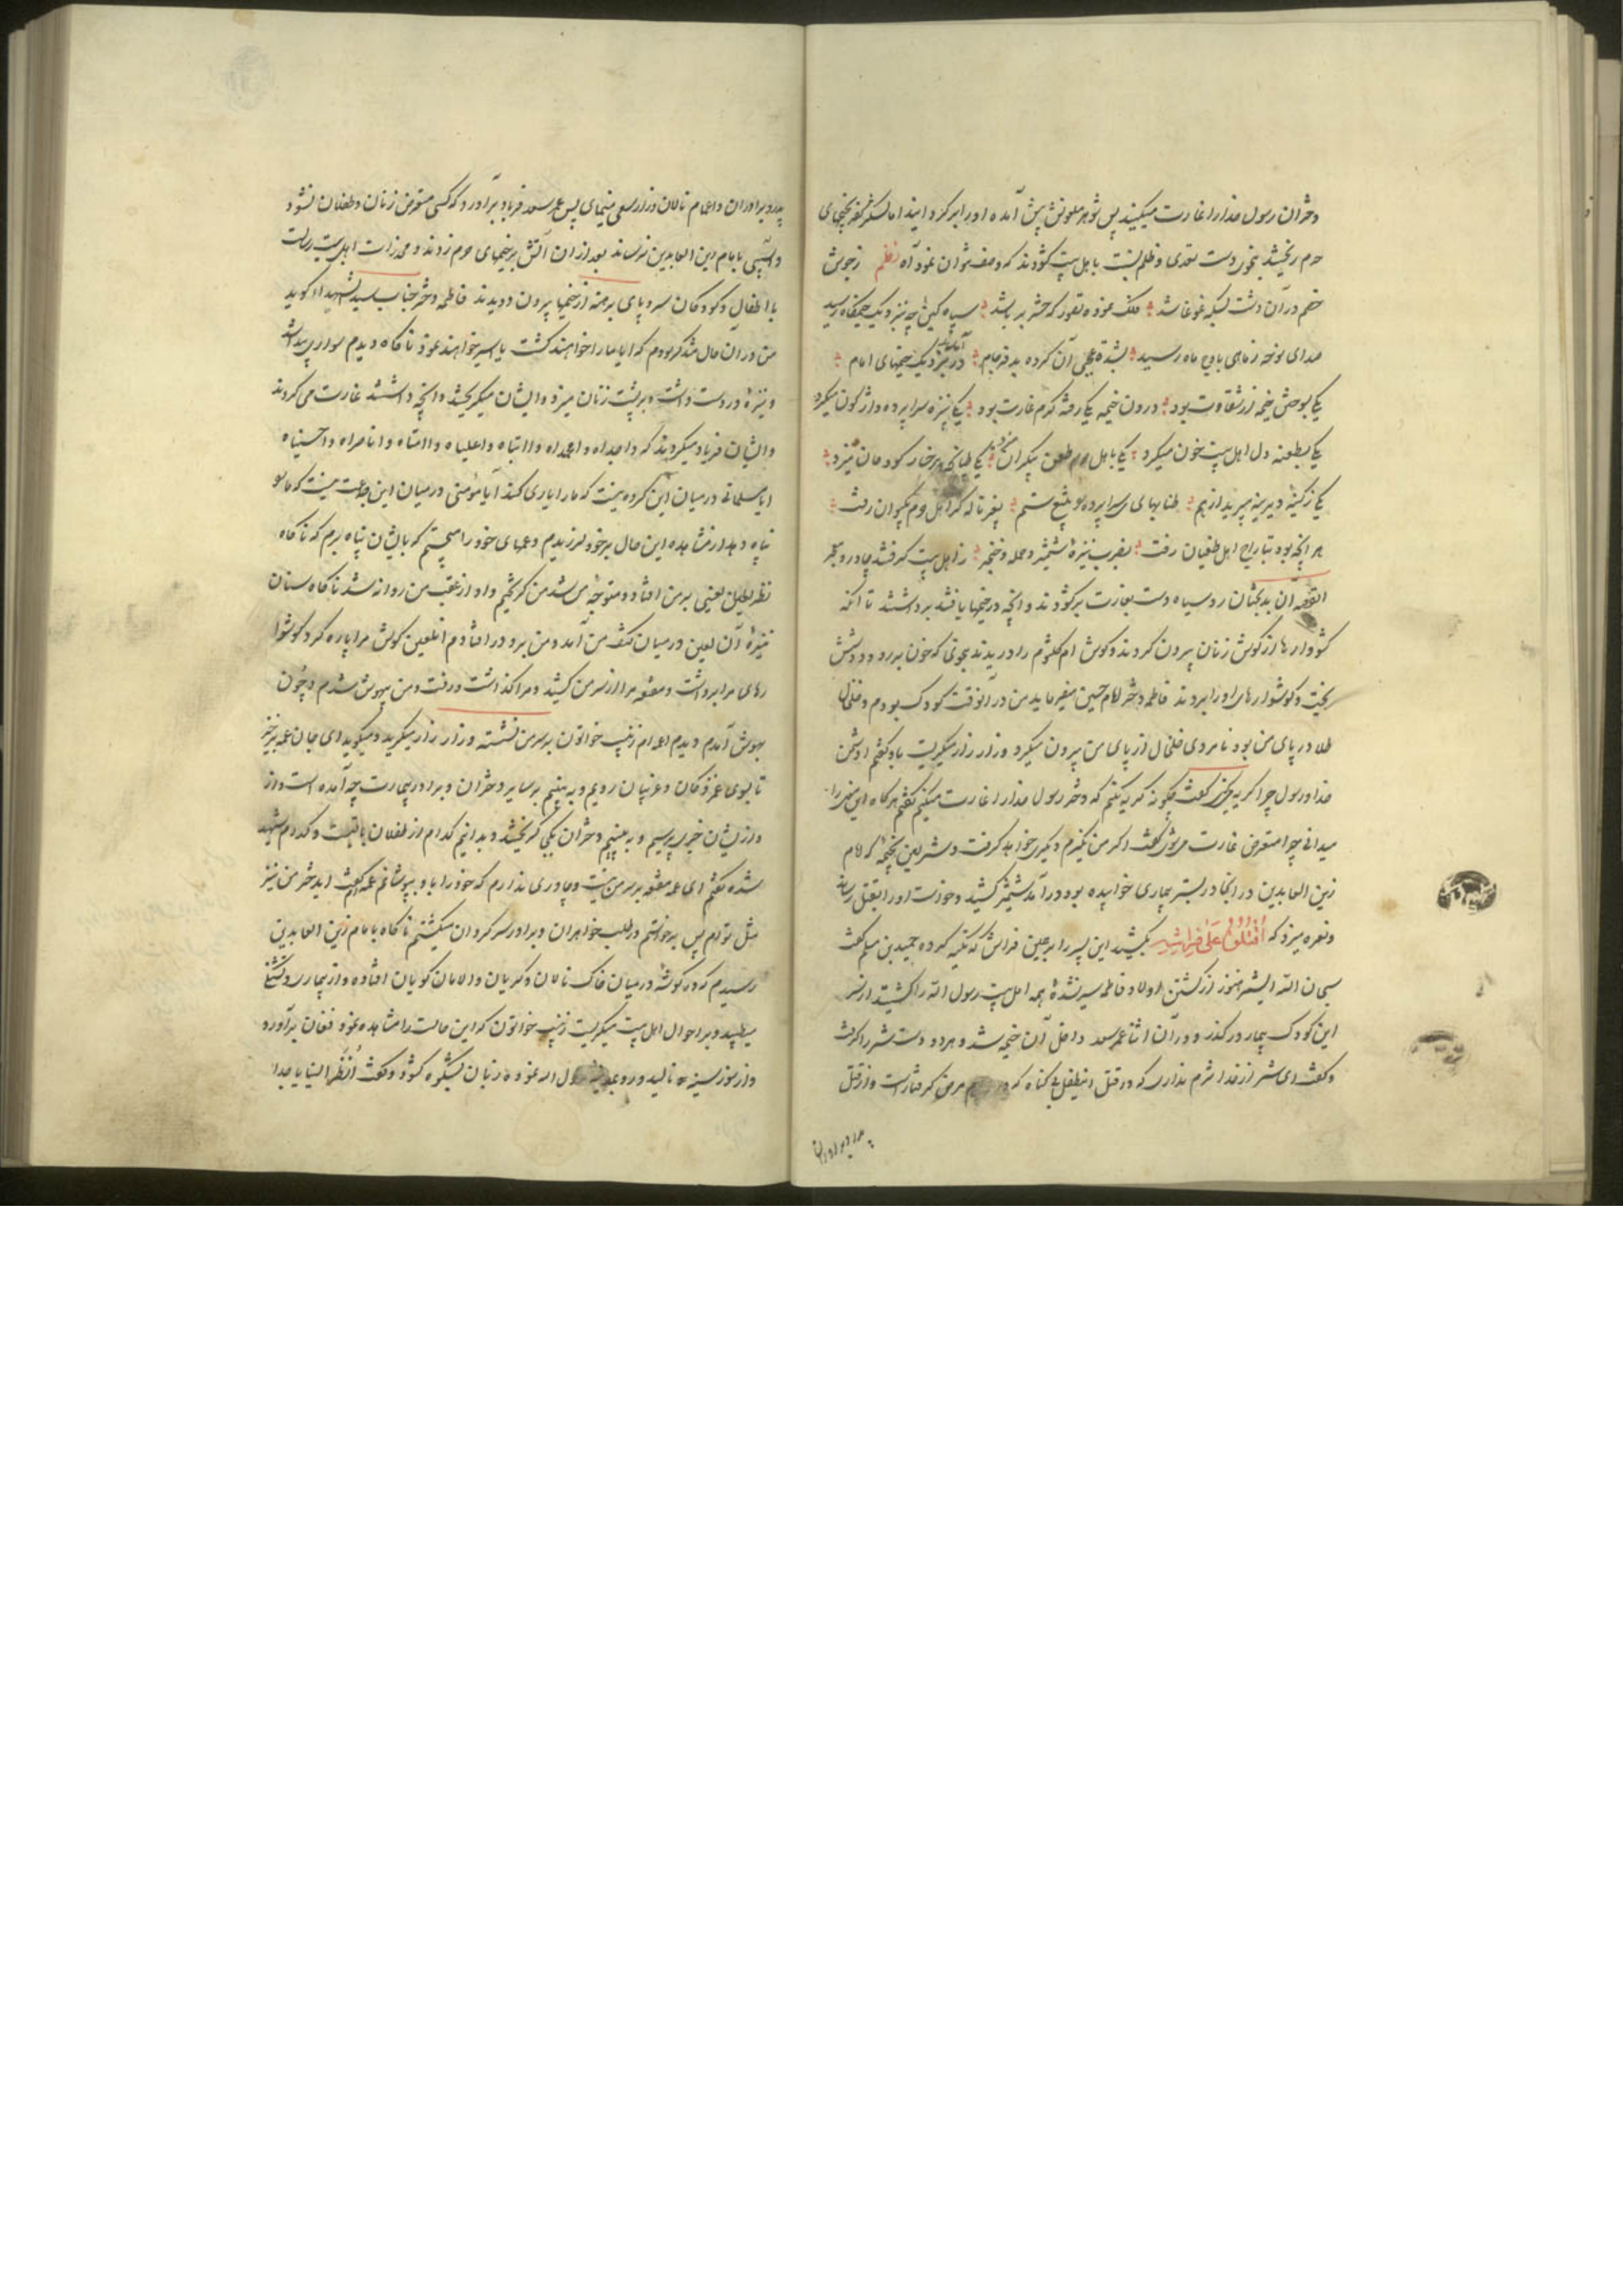 دختران رسول خدا را غارت میکنید پس شوهر ملعونش پیش آمده او را برگردانید اما لشکر کفر بخیمهای
حرم ریختند دست تعدی و ظلم باهل بیت گشودند که وصف نتوان نمود آه نظم ز جوش
خصم در آن دشت بسکه غوغا شد فلک نموده تصور که حشر بر پا شد سپاه کین چه بنزدیک خیمگاه رسید
صدای نوحه ز ماهی باوج ماه رسید آن کرده بد فرجام در نزدیک خیمهای امام
یکی بوحش خیمه ز شقاوت بود درون خیمه یکی رفته گرم غارت بود یکی بنیزه سراپرده واژگون میکرد
یکی بطعنه دل اهل بیت خون میکرد یکی باهل حرم طعن بیکران میزد یکی طپانچه برخسار کودکان میزد
یکی ز کینه دیرینه میبرید از هم طنابهای سراپرده به تیغ ستم بغیر ناله کز اهل حرم بکیوان رفت
هر آنچه بود بتاراج اهل طغیان رفت بضرب نیزه و شمشیر و حمله و خنجر ز اهل بیت گرفتند چادر و معجر
القصه آن بدبختان رو سیاه دست بغارت برگشودند و آنچه در خیمها یافتند برداشتند تا آنکه
گوشوارها از گوش زنان بیرون کردند و گوش ام کلثوم را دریدند بنحوی که خون بر رو و دوشش
ریخت و گوشوارهای او را بردند فاطمه دختر امام حسین میفرماید من در آنوقت کودک بودم و خلخال
طلا در پای من بود نامردی خلخال از پای من بیرون میکرد و زار زار میگریست باو گفتم ای دشمن
خدا و رسول چرا گریه میکنی گفت چگونه گریه نکنم که دختر رسول خدا را غارت میکنم گفتم هرگاه این میدانی را
میدانی چرا متعرض غارت میشوی گفت اگر من نگیرم دیگری خواهد گرفت و شمر لعین بخیمه که امام
زین العابدین در آنجا در بستر بیماری خوابیده بود درآمد شمشیر کشید و خواست او را بقتل رساند
و نعره میزد که اقتلوه علی فراشه بکشید این پسر را بر همین فراش که تکیه کرده حمید بن مسلم گفت
سبحان الله ای شمر هنوز از کشتن اولاد فاطمه سیر نشده همه اهل بیت رسول الله را کشتید از سر
این کودک بیمار درگذر و در آن اثنا عمر سعد داخل آن خیمه شد و هر دو دست شمر را گرفت
و گفت ای شمر از خدا شرم نداری که در قتل این طفل بی گناه که مرض گرفتار است و از قتل
پدر و برادران
پدر و برادران و اعمام نالان و زار سعی مینمائی پس عمر سعد فریاد برآورد که کسی متعرض زنان و طفلان نشود
و آسیبی بامام زین العابدین نرساند بعد از آن آتش بر خیمهای حرم زدند و مخدرات اهل بیت رسالت
با اطفال و کودکان سر و پای برهنه از خیمها بیرون دویدند فاطمه دختر جناب سید الشهدا گوید
من در آن حال متفکر بودم که آیا ما را خواهند کشت یا اسیر خواهند نمود ناگاه دیدم سواری پیدا شد
و نیزه در دست داشت و بر پشت زنان میزد و ایشان میگریختند و آنچه داشتند غارت می کردند
و ایشان فریاد میکردند که وا جداه وا محمداه وا ابتاه وا علیاه وا امتاه وا ناصراه وا حسیناه
آیا مسلمانی در میان این گروه نیست که ما را یاری کند آیا مؤمنی در میان این جماعت نیست که ما را
پناه دهد از مشاهده این حال بر خود لرزیدم و عمهای خود را میجستم که بایشان پناه برم که ناگاه
نظر آن لعین بر من افتاد و متوجه من شد من گریختم و او از عقب من روانه شد ناگاه سنان
نیزه آن لعین در میان کتف من آمد و من برو در افتادم آن لعین گوش مرا پاره کرد و گوشوار
های مرا برداشت و مقنعه مرا از سر من کشید و مرا گذاشت و رفت و من بیهوش شدم و چون
بهوش آمدم دیدم عمه ام زینب خواتون بر سر من نشسته و زار زار میگرید و میگوید ای جان عمه برخیز
تا بسوی عمزدگان و غریبان رویم و به بینیم بر سایر دختران و برادر بیمارت چه آمده است و از
و از ایشان خبری پرسیم و به بینیم دختران بکجا گریختند و بدانیم کدام از طفلان باقیست و کدام شهید
شده گفتم ای عمه مقنعه بر سر من نیست و چادری ندارم که خود را باو بپوشانم عمه ام گفت ای دختر من نیز
مثل تو ام پس برخواستم در طلب خواهران و برادر سرگردان میگشتیم ناگاه بامام زین العابدین
رسیدم که در گوشه در میان خاک نالان و گریان و الامان گویان افتاده و از بیماری و تشنگی
میطپید و بر احوال اهل بیت میگریست زینب خواتون که این حالت را مشاهده نمود فغان برآورد
و از سوز سینه نالید و رو بمدینه رسول الله نموده زبان بشکوه گشود و گفت انظر الینا یا جدا